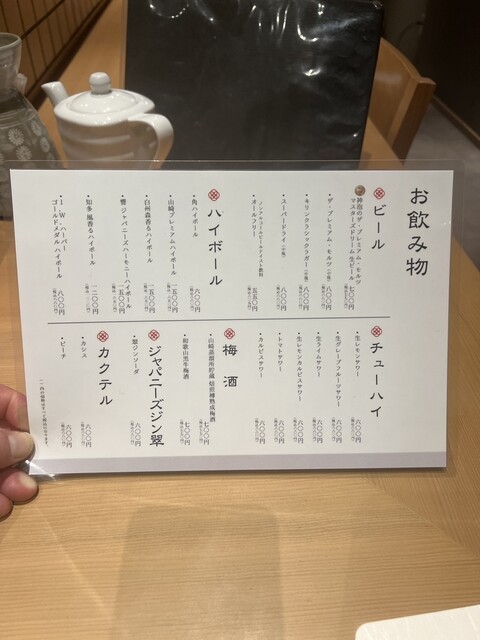 お飲み物
ビール
神泡のザ・プレミアム・モルツ
マスターズドリーム 生ビール
七〇〇円
・ザ・プレミアム・モルツ(小瓶)
八〇〇円
・キリンクラシックラガー(小瓶)
八〇〇円
・スーパードライ(小瓶)
八〇〇円
ノンアルコールビールテイスト飲料
・オールフリー
五五〇円
ハイボール
・角ハイボール
六〇〇円
・山崎プレミアムハイボール
一五〇〇円
・白州森香るハイボール
一五〇〇円
・響 ジャパニーズハーモニーハイボール
一五〇〇円
・知多 風香るハイボール
一二〇〇円
・I.W.ハーパー
ゴールドメダル ハイボール
八〇〇円
チューハイ
・生レモンサワー
六〇〇円
・生グレープフルーツサワー
六〇〇円
・生ライムサワー
六〇〇円
・生レモンカルピスサワー
六〇〇円
・トマトサワー
六〇〇円
・カルピスサワー
六〇〇円
梅酒
・山崎蒸溜所貯蔵 焙煎樽熟成梅酒
七〇〇円
・和歌山黒牛梅酒
七〇〇円
ジャパニーズジン翠
・翠ジンソーダ
六〇〇円
カクテル
・カシス
六〇〇円
・ピーチ
六〇〇円